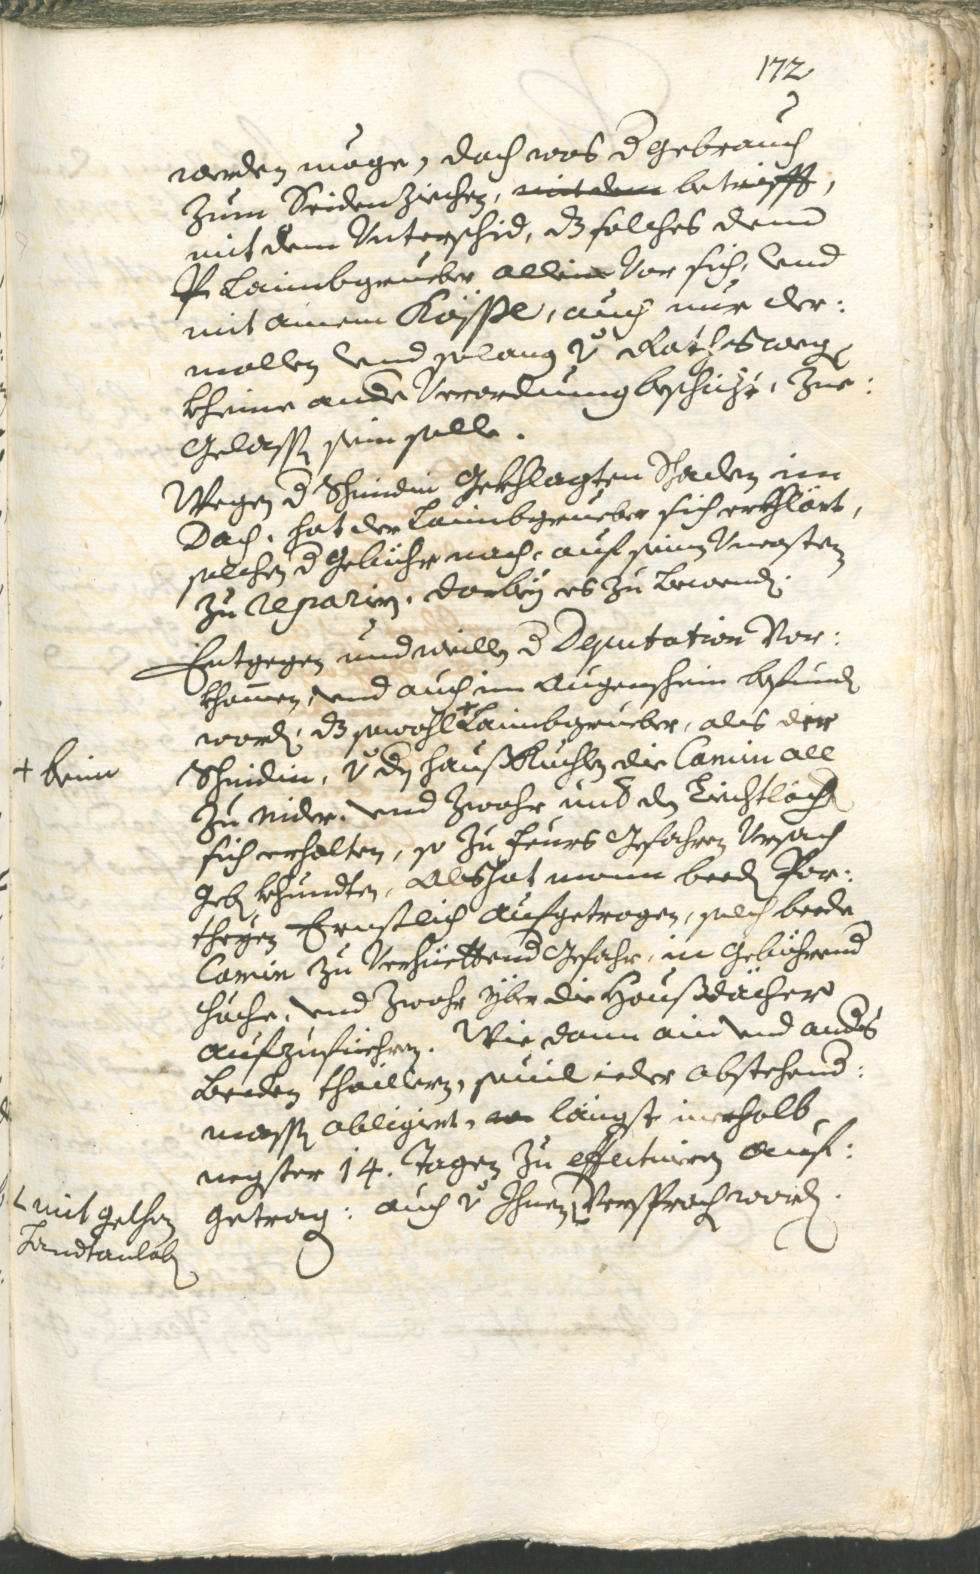 172
werden möge, doch was d gebrauch
zum Seiden ziechen, mit dem betrifft,
mit dem Unterschid, dz solches dem
H Laimbgrueber allein vor sich, und
mit ainem Rössl, auch nur der:
mallen und solang v Raths weg
kheine ande Verordnung beschicht, zue:
gelassen sein solle.
Wegen d Schmidin geklagten Schaden im
Dach, hat der Laimbgrueber sich erkhlärt,
solchen d gebühr nach, auf seine Uncosten
zu reparirn, darbey es zu bewenden.
Entgegen und weillen d Deputation vor:
khommen, und auch im Augenschein befunden
worden, dz sowohl + Laimbgrueber, als der
+ beim
Schmidin, v den hauß Kuchlen die Camin all
zu nider, und zwahr und den Liechtlöchern
sich erhalten, so zu feurs gefahren Ursach
geben khundten, Als hat mann beeden Par:
theyen Ernstlich aufgetragen, solch beede
Camin zu Verhüettend gefahr, in gebührend
höche, und zwahr yber die Haußdächer
aufzufiehren. Wie dann ain und ands
beeden thaillern, sovil ieder abstehend:
massen obligirt, längst inerhalb
negster 14. Tagen zu effectuiren auf:
getragen: auch v Ihnen Versprochen worden.
mit gethon
Handtanloben